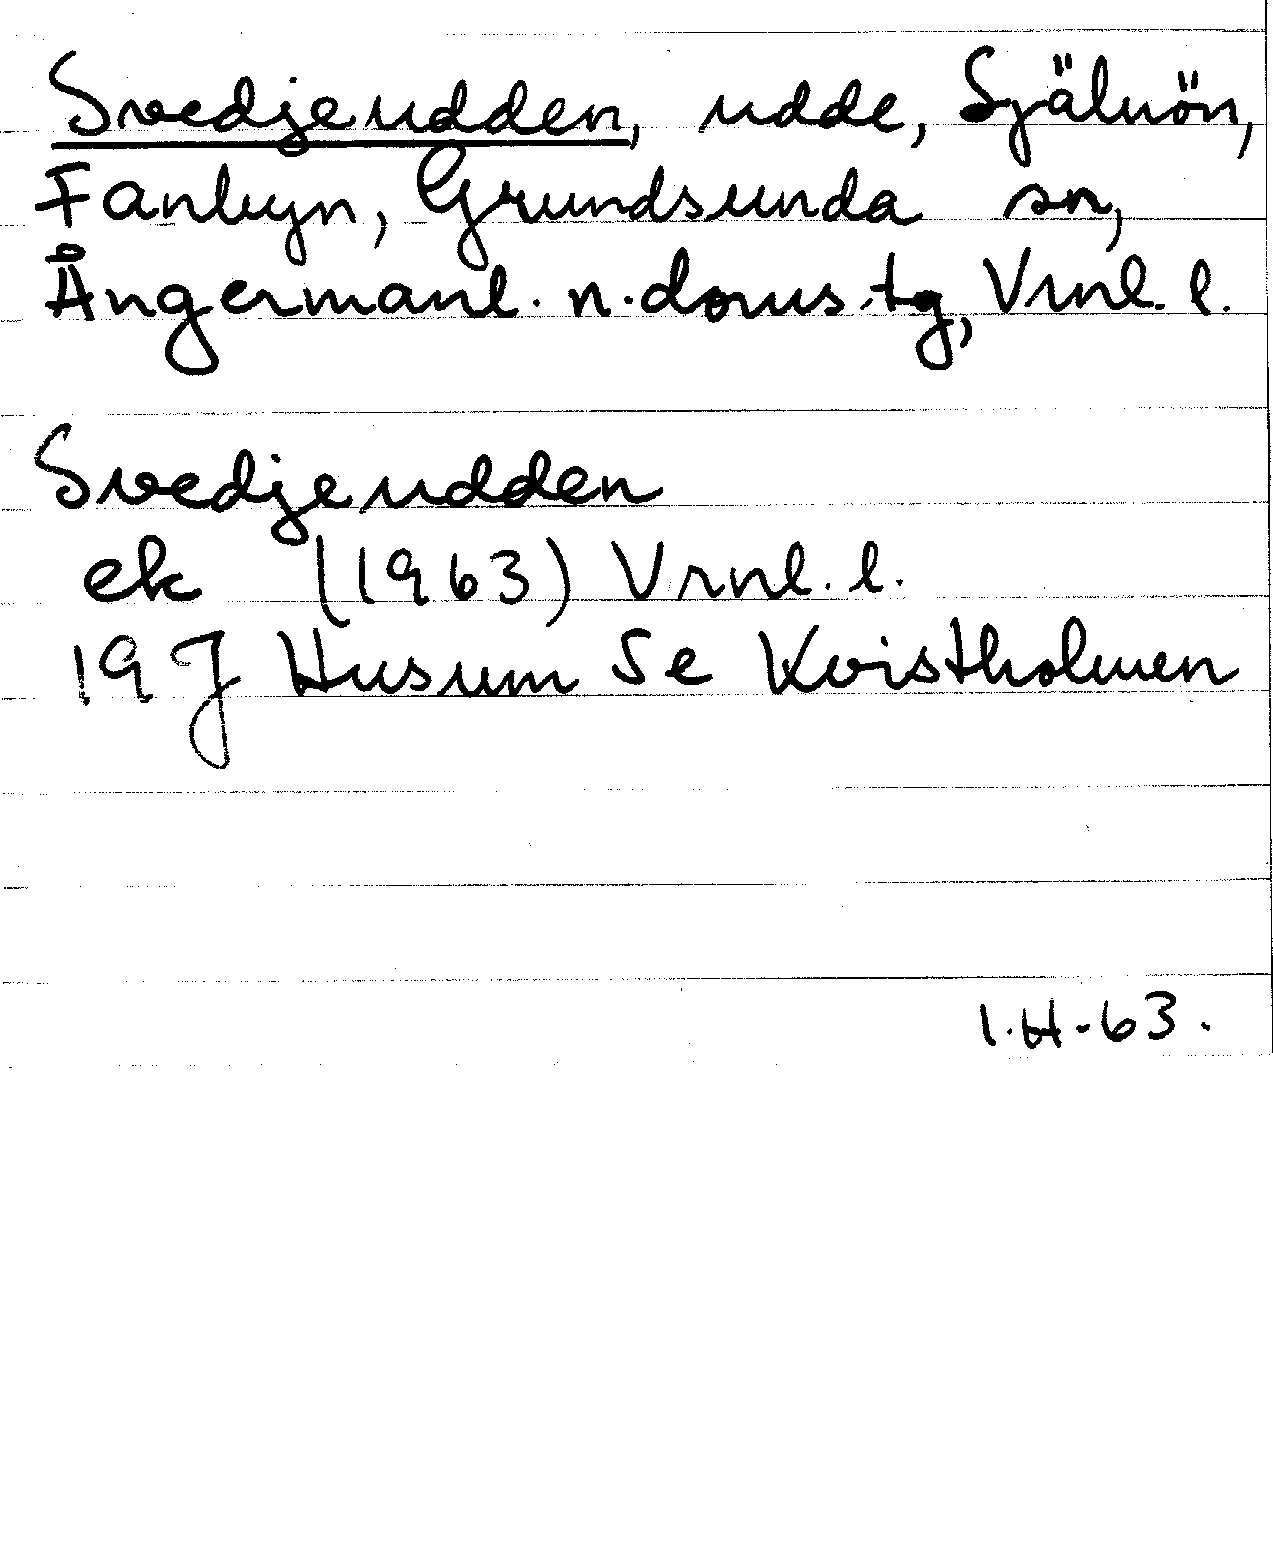 Svedjeudden, udde, Själnön,
Fanbyn, Grundsunda sn,
Ångermanl. n. doms. tg, Vrnl. l.
Svedjeudden
ek (1963) Vrnl. l.
19 J Husum 5e Kvistholmen
I.H-63.